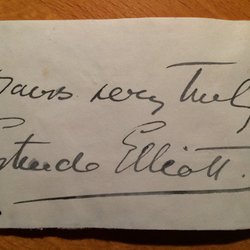 Yours very truly
Gertrude Elliott.